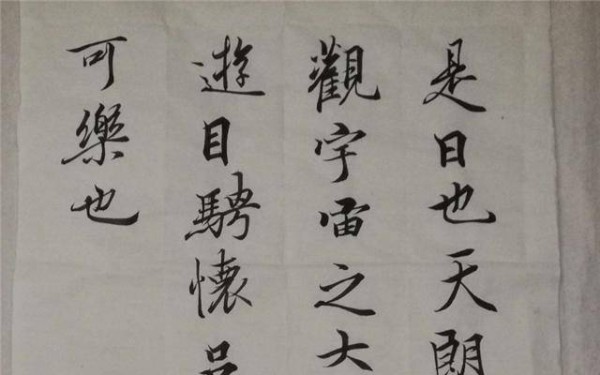 是日也天朗
觀宇宙之大
遊目騁懷足
可樂也